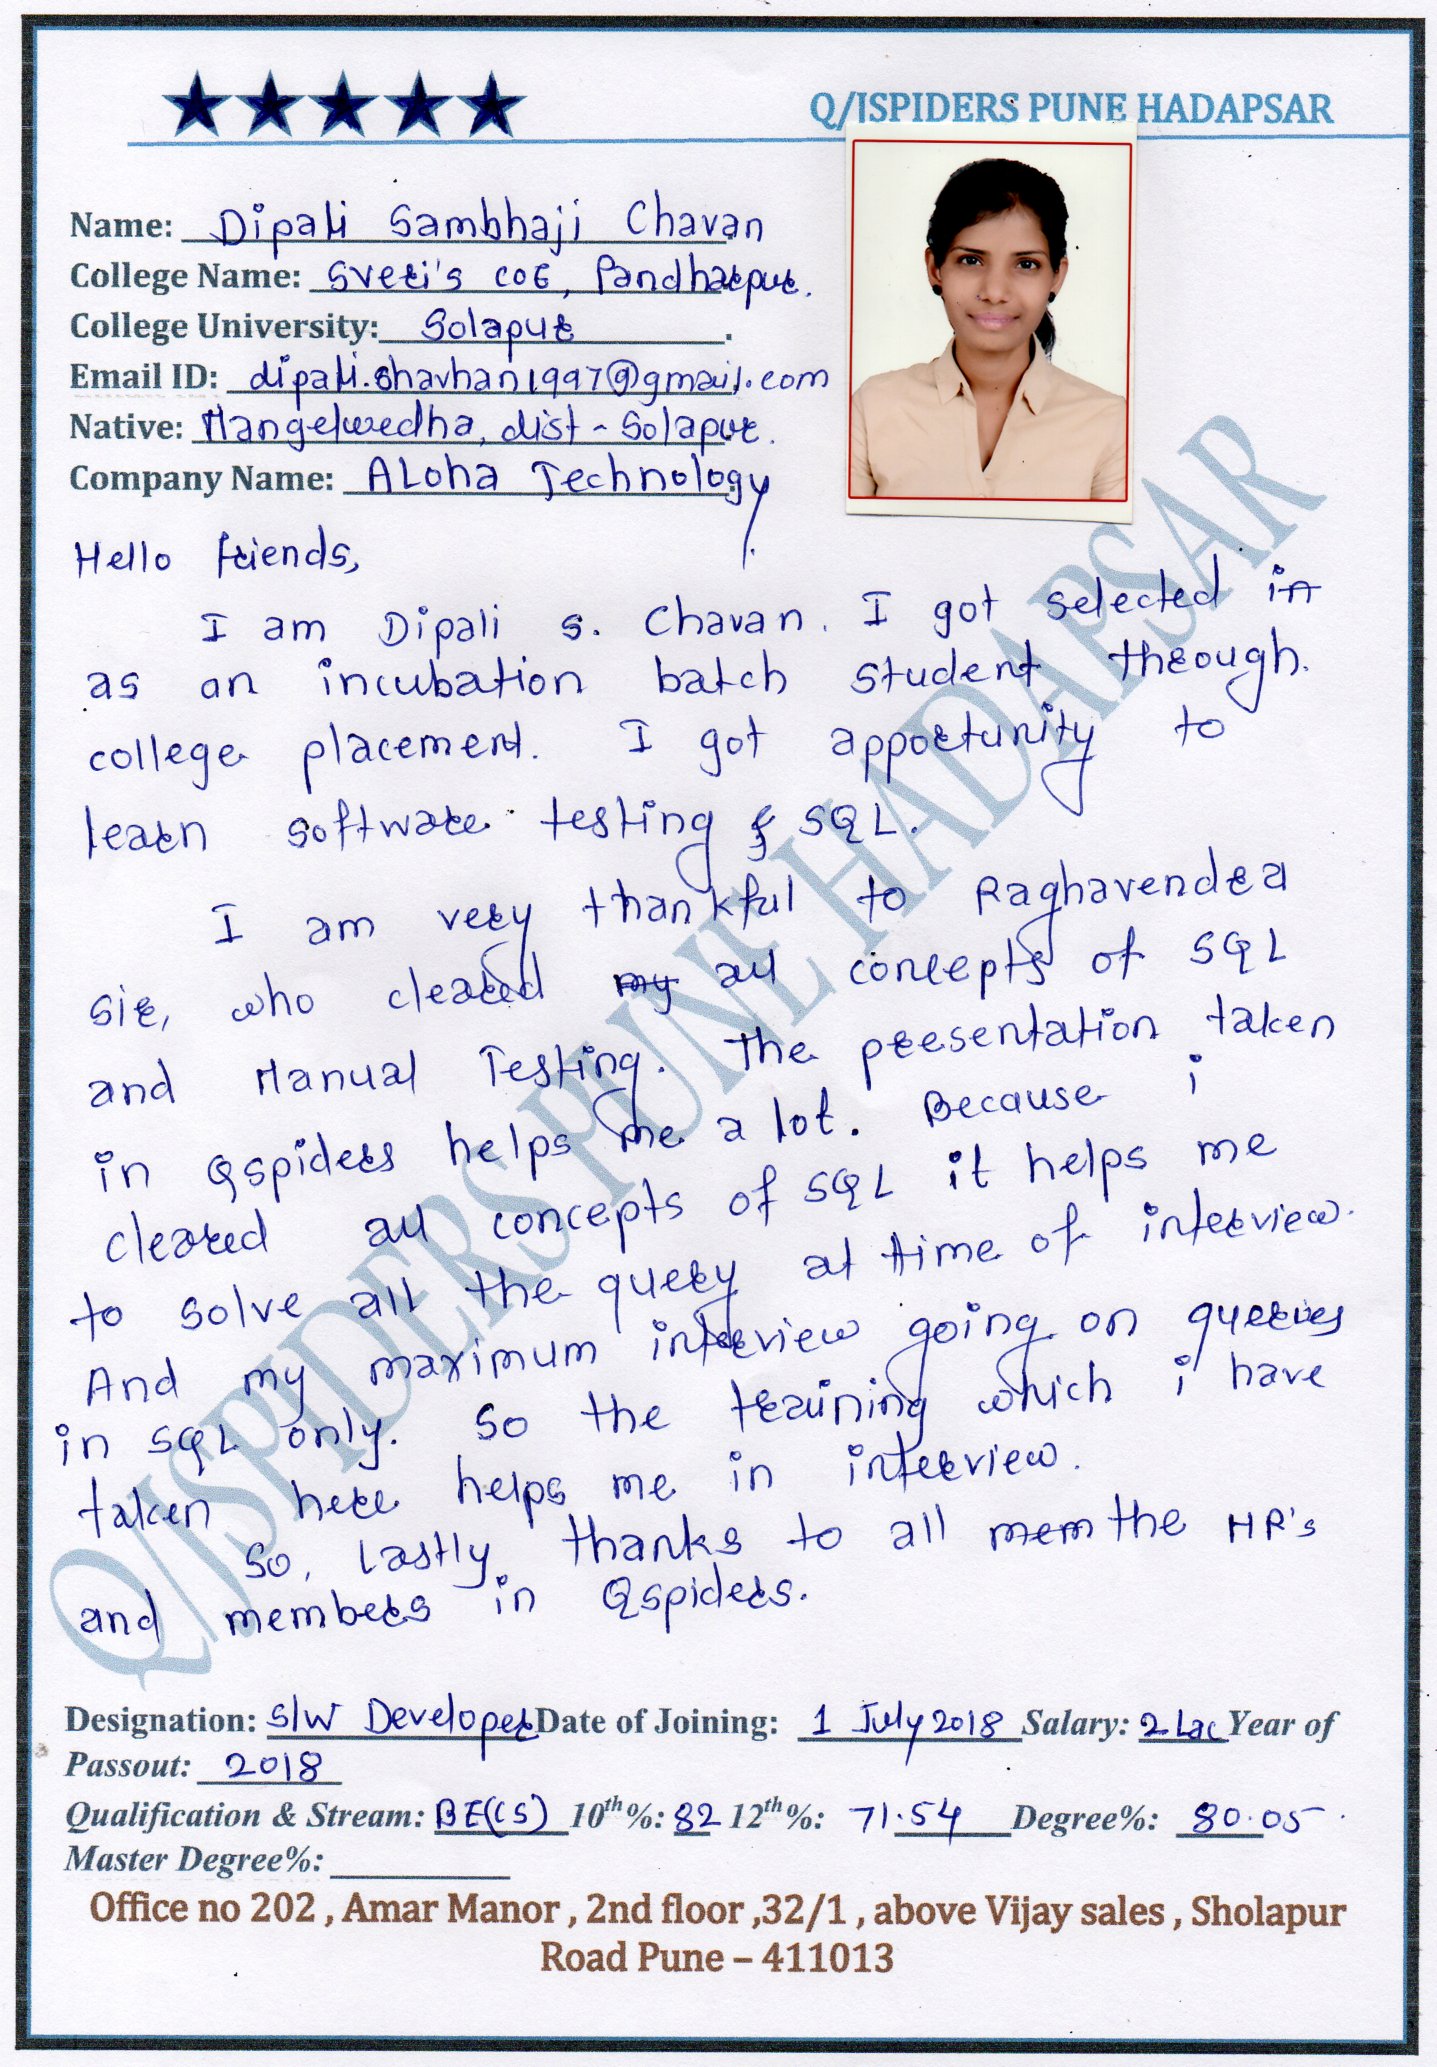 Q/JSPIDERS PUNE HADAPSAR
Name: Dipali Sambhaji Chavan
College Name: Sveri's COE, Pandharpur.
College University: Solapur.
Email ID: dipali.chavhan1997@gmail.com
Native: Mangelwedha, dist - Solapur.
Company Name: Aloha Technology.
Hello friends,
I am Dipali S. Chavan. I got selected in
as an incubation batch student through
college placement. I got apportunity to
learn software testing & SQL.
I am very thankful to Raghavendra
sir, who cleared my all concepts of SQL
and Manual Testing. The presentation taken
in Qspiders helps me a lot. Because i
cleared all concepts of SQL it helps me
to solve all the query at time of interview.
And my maximum interview going on
in SQL only. So the training which i have
taken here helps me in interview.
So, Lastly thanks to all mem the HR's
and members in Qspiders.
Designation: S/W Developer Date of Joining: 1 July 2018 Salary: 2 Lac Year of
Passout: 2018
Qualification & Stream: BE(CS) 10th%: 82 12th%: 71.54 Degree%: 80.05
Master Degree%:
Office no 202 , Amar Manor , 2nd floor ,32/1 , above Vijay sales , Sholapur
Road Pune – 411013
Q/JSPIDERS PUNE HADAPSAR